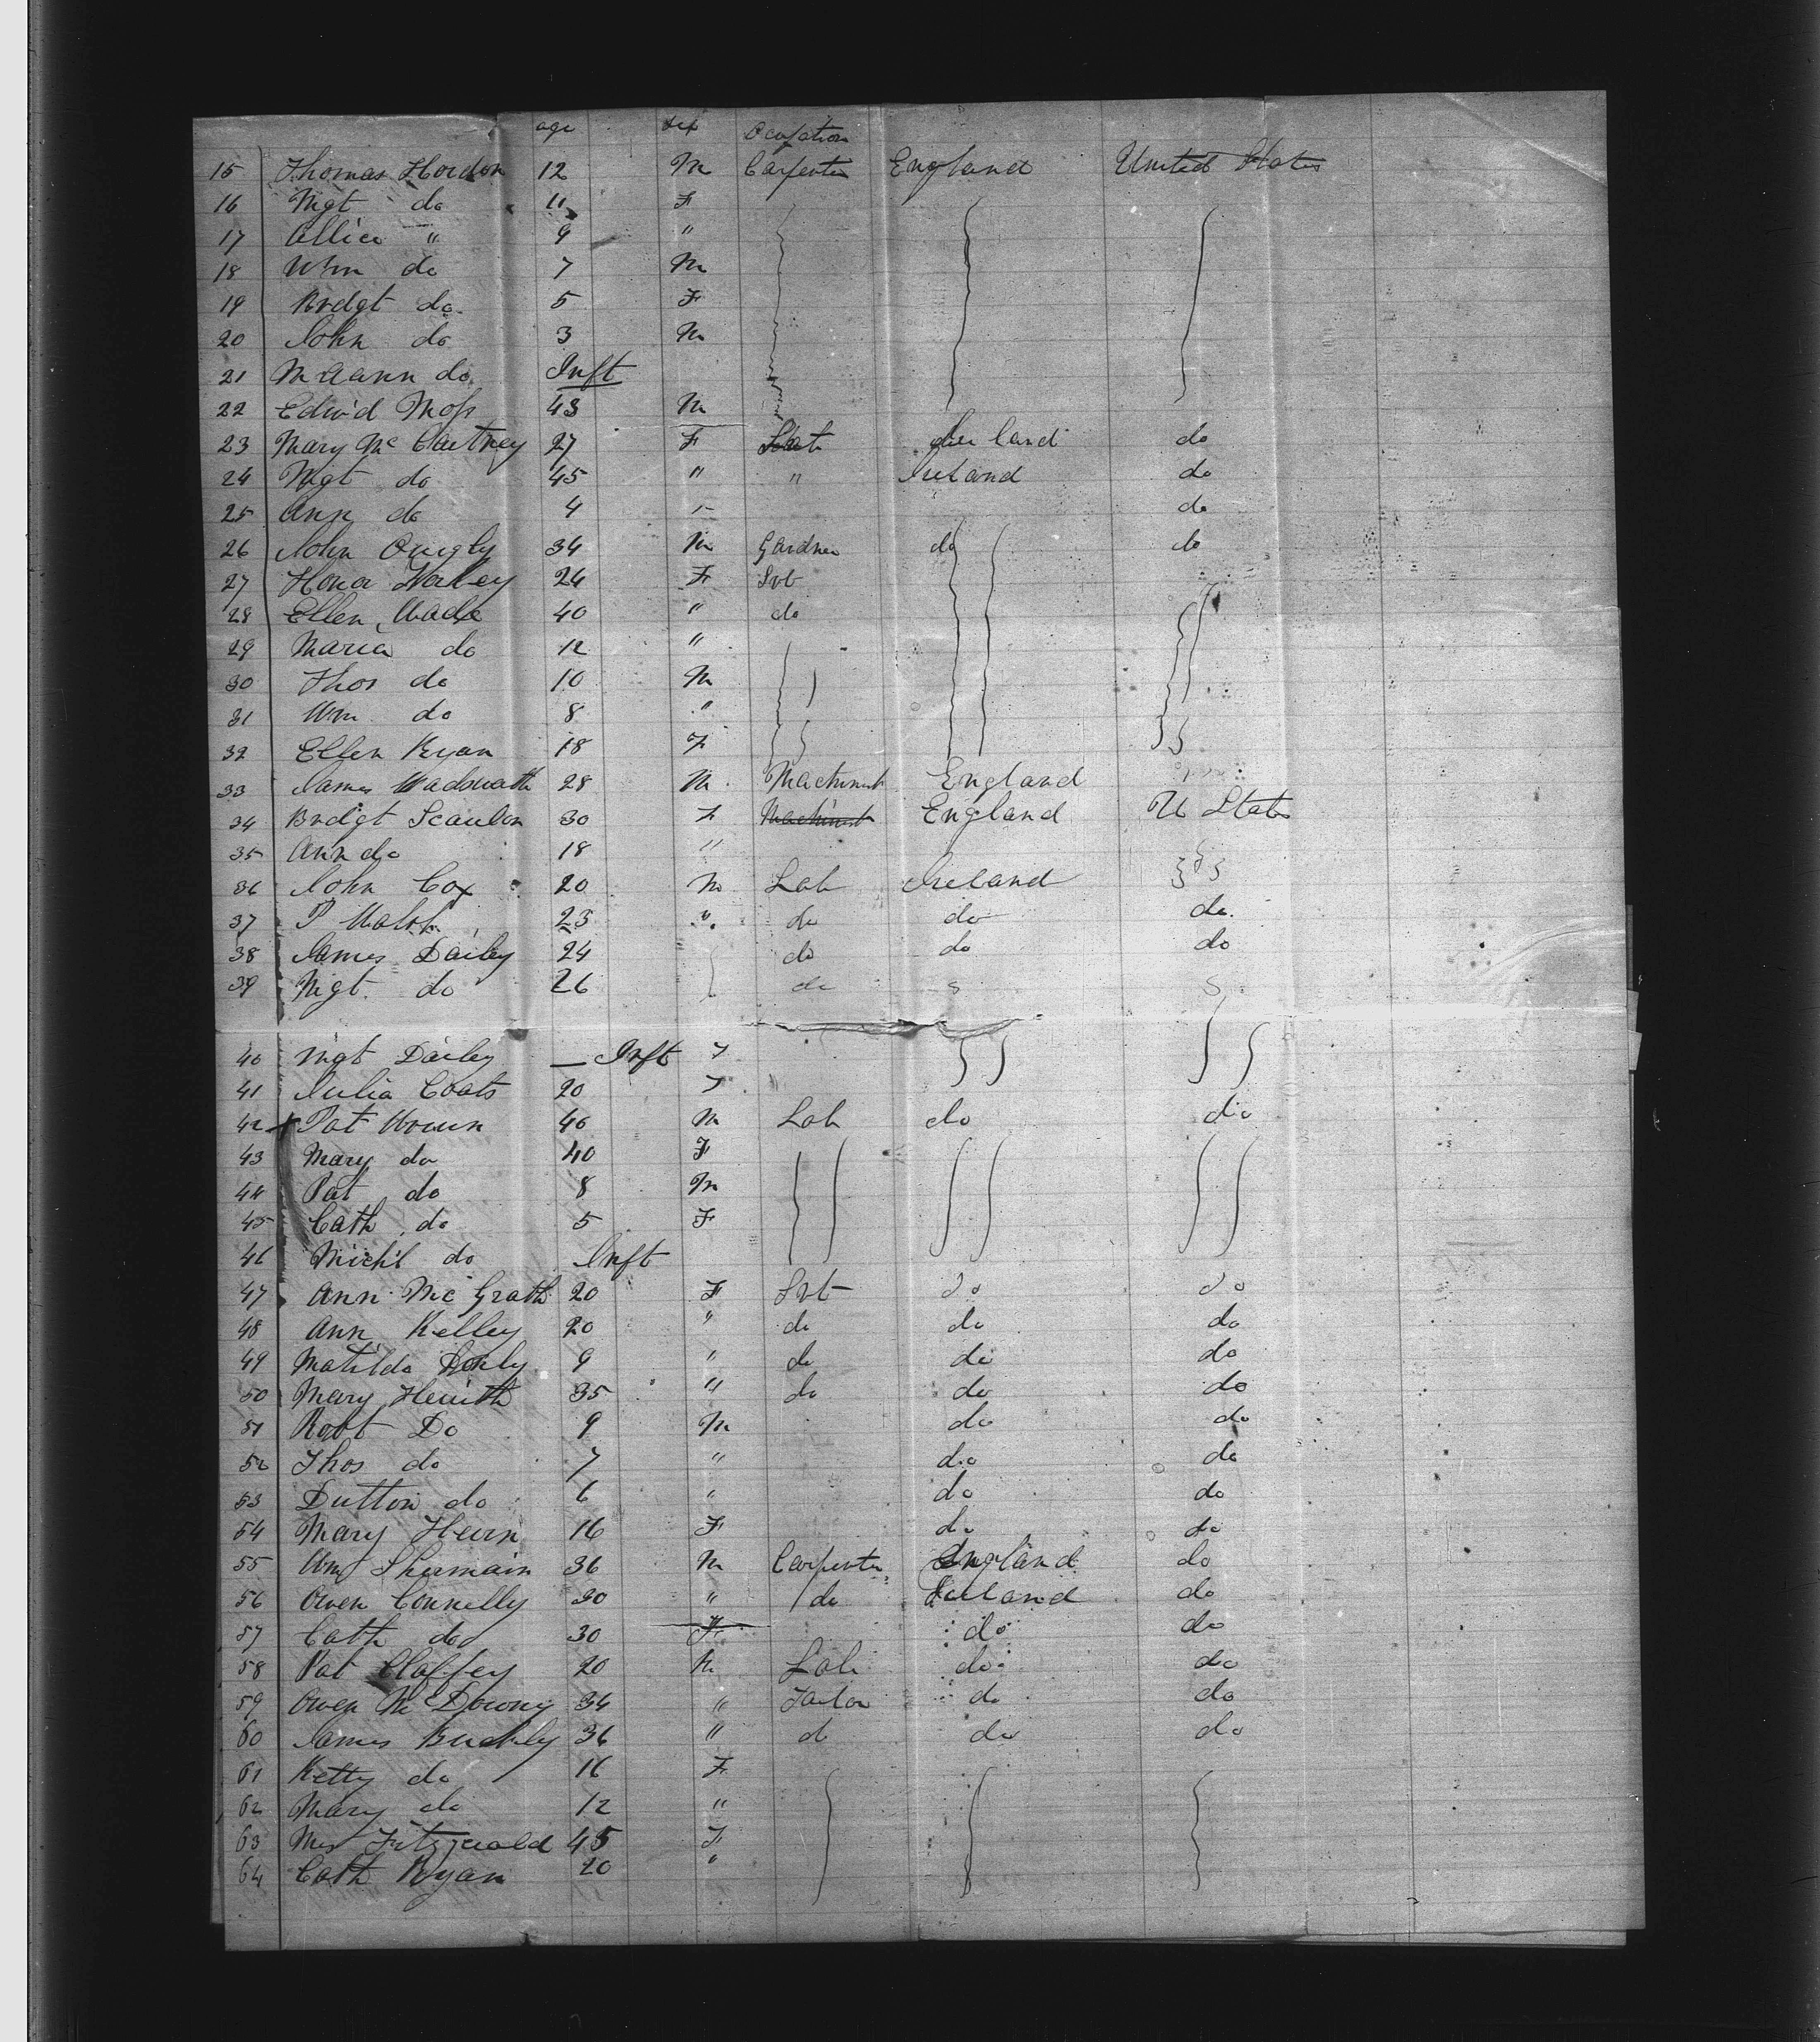 age sex Ocupation
15 Thomas Hordon 12 M Carpenter England United States
16 Mgt do 11 F
17 Allice " 9 "
18 Wm do 7 M
19 Brdgt do 5 F
20 John do 3 M
21 M Aann do Inft
22 Edwd Moss 43 M
23 Mary Mc Cartney 27 F Ireland do
24 Mgt do 45 " " Ireland do
25 Ann do 4 " do
26 John Quigly 34 M Gardner do do
27 Honor 24 F Svt
28 Ellen Wade 40 " do
29 Maria do 12 "
30 Thos do 10 M
31 Wm do 8 "
32 Ellen Ryan 18 F
33 James Wadswath 28 M Machinist England
34 Brdgt Scanlon 30 F Machinist England U States
35 Ann do 18 "
36 John Cox 20 M Lab Ireland
37 P Walsh 23 " do do do
38 James Dailey 24 do do do
39 Mgt do 26 do
40 Mgt Dailey — Inft F
41 Julia Coats 20 F
42 Pat 40 M Lab do do
43 Mary do 40 F
44 Pat do 8 M
45 Cath do 5 F
46 Michl do Inft
47 Ann Mc Grath 20 F Svt do do
48 Ann Kelley 20 " do do do
49 Matilda 9 " do do do
50 Mary 35 " do do do
51 Robt Do 9 M do do
52 Thos do 7 " do do
53 Dutton do 6 " do do
54 Mary Hern 16 F do do
55 Wm Shermain 36 M Carpenter England do
56 Owen Connelly 30 " do Ireland do
57 Cath do 30 F do do
58 Pat Claffey 20 M Lab do do
59 Owen Mc Downy 34 " Tailor do do
60 James Buckly 36 " do do do
61 Ketty do 16 F
62 Mary do 12 "
63 Mrs Fitzgerald 45 F
64 Cath Ryan 20 "